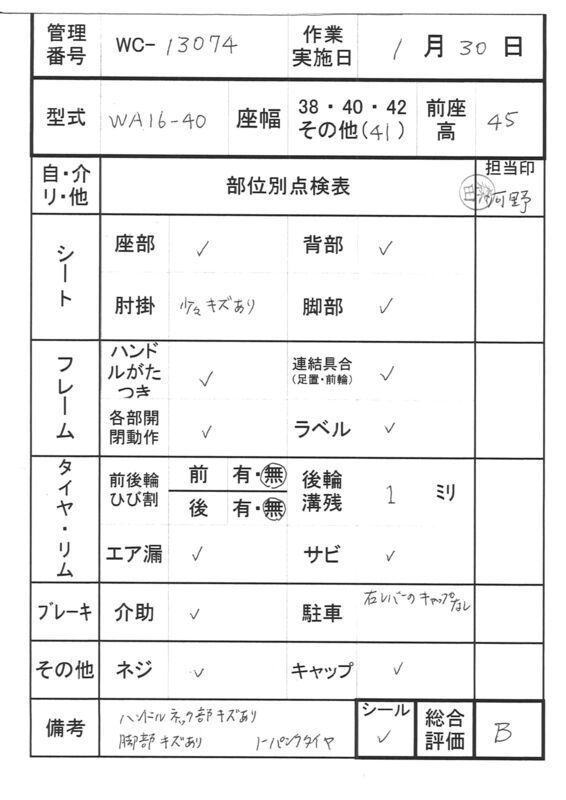 管理番号 WC- 13074 作業実施日 1月30日
型式 WA16-40 座幅 38・40・42 その他(41) 前座高 45
自・介リ・他 部位別点検表 担当印 河野
シート 座部 ✓ 背部 ✓
肘掛 少々キズあり 脚部 ✓
フレーム ハンドルがたつき ✓ 連結具合(足置・前輪) ✓
各部開閉動作 ✓ ラベル ✓
タイヤ・リム 前後輪ひび割 前 有・無 後輪溝残 1 ミリ
後 有・無
エア漏 ✓ サビ ✓
ブレーキ 介助 ✓ 駐車 右レバーのキャップなし
その他 ネジ ✓ キャップ ✓
備考 ハンドルネック部キズあり シール ✓ 総合評価 B
脚部キズあり ノーパンクタイヤ